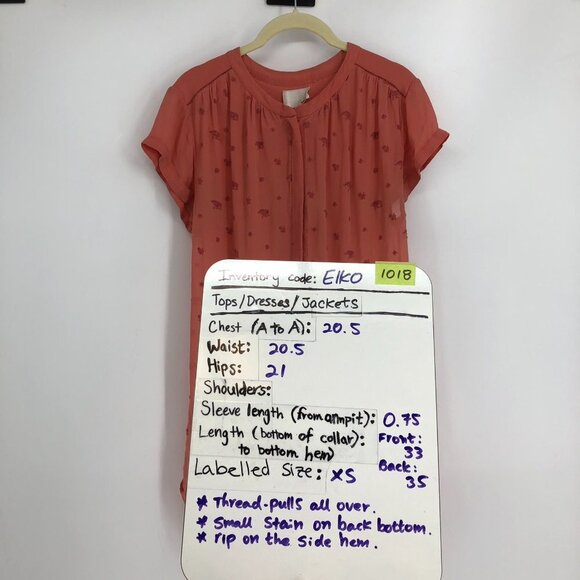 Inventory code: EIKO 1018
Tops/Dresses/Jackets
Chest (A to A): 20.5
Waist: 20.5
Hips: 21
Shoulders:
Sleeve length (from armpit): 0.75
Length (bottom of collar): Front:
to bottom hem) 33
Back:
Labelled Size: XS 35
* Thread-pulls all over.
* Small Stain on back bottom.
* rip on the side hem.